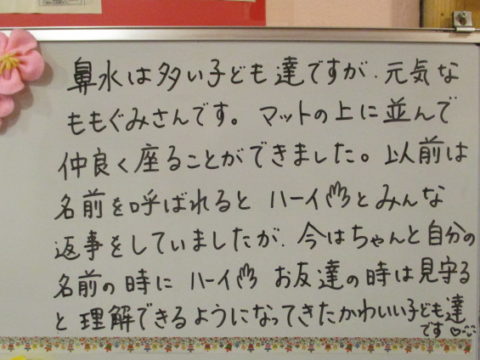 鼻水は多い子ども達ですが、元気な
ももぐみさんです。マットの上に並んで
仲良く座ることができました。以前は
名前を呼ばれると ハーイ とみんな
返事をしていましたが、今はちゃんと自分の
名前の時に ハーイ お友達の時は見守る
と理解できるようになってきたかわいい子ども達
です